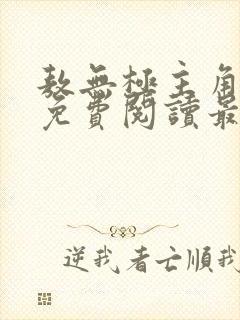 敖無極主角
免費閱讀最
逆我者亡順我